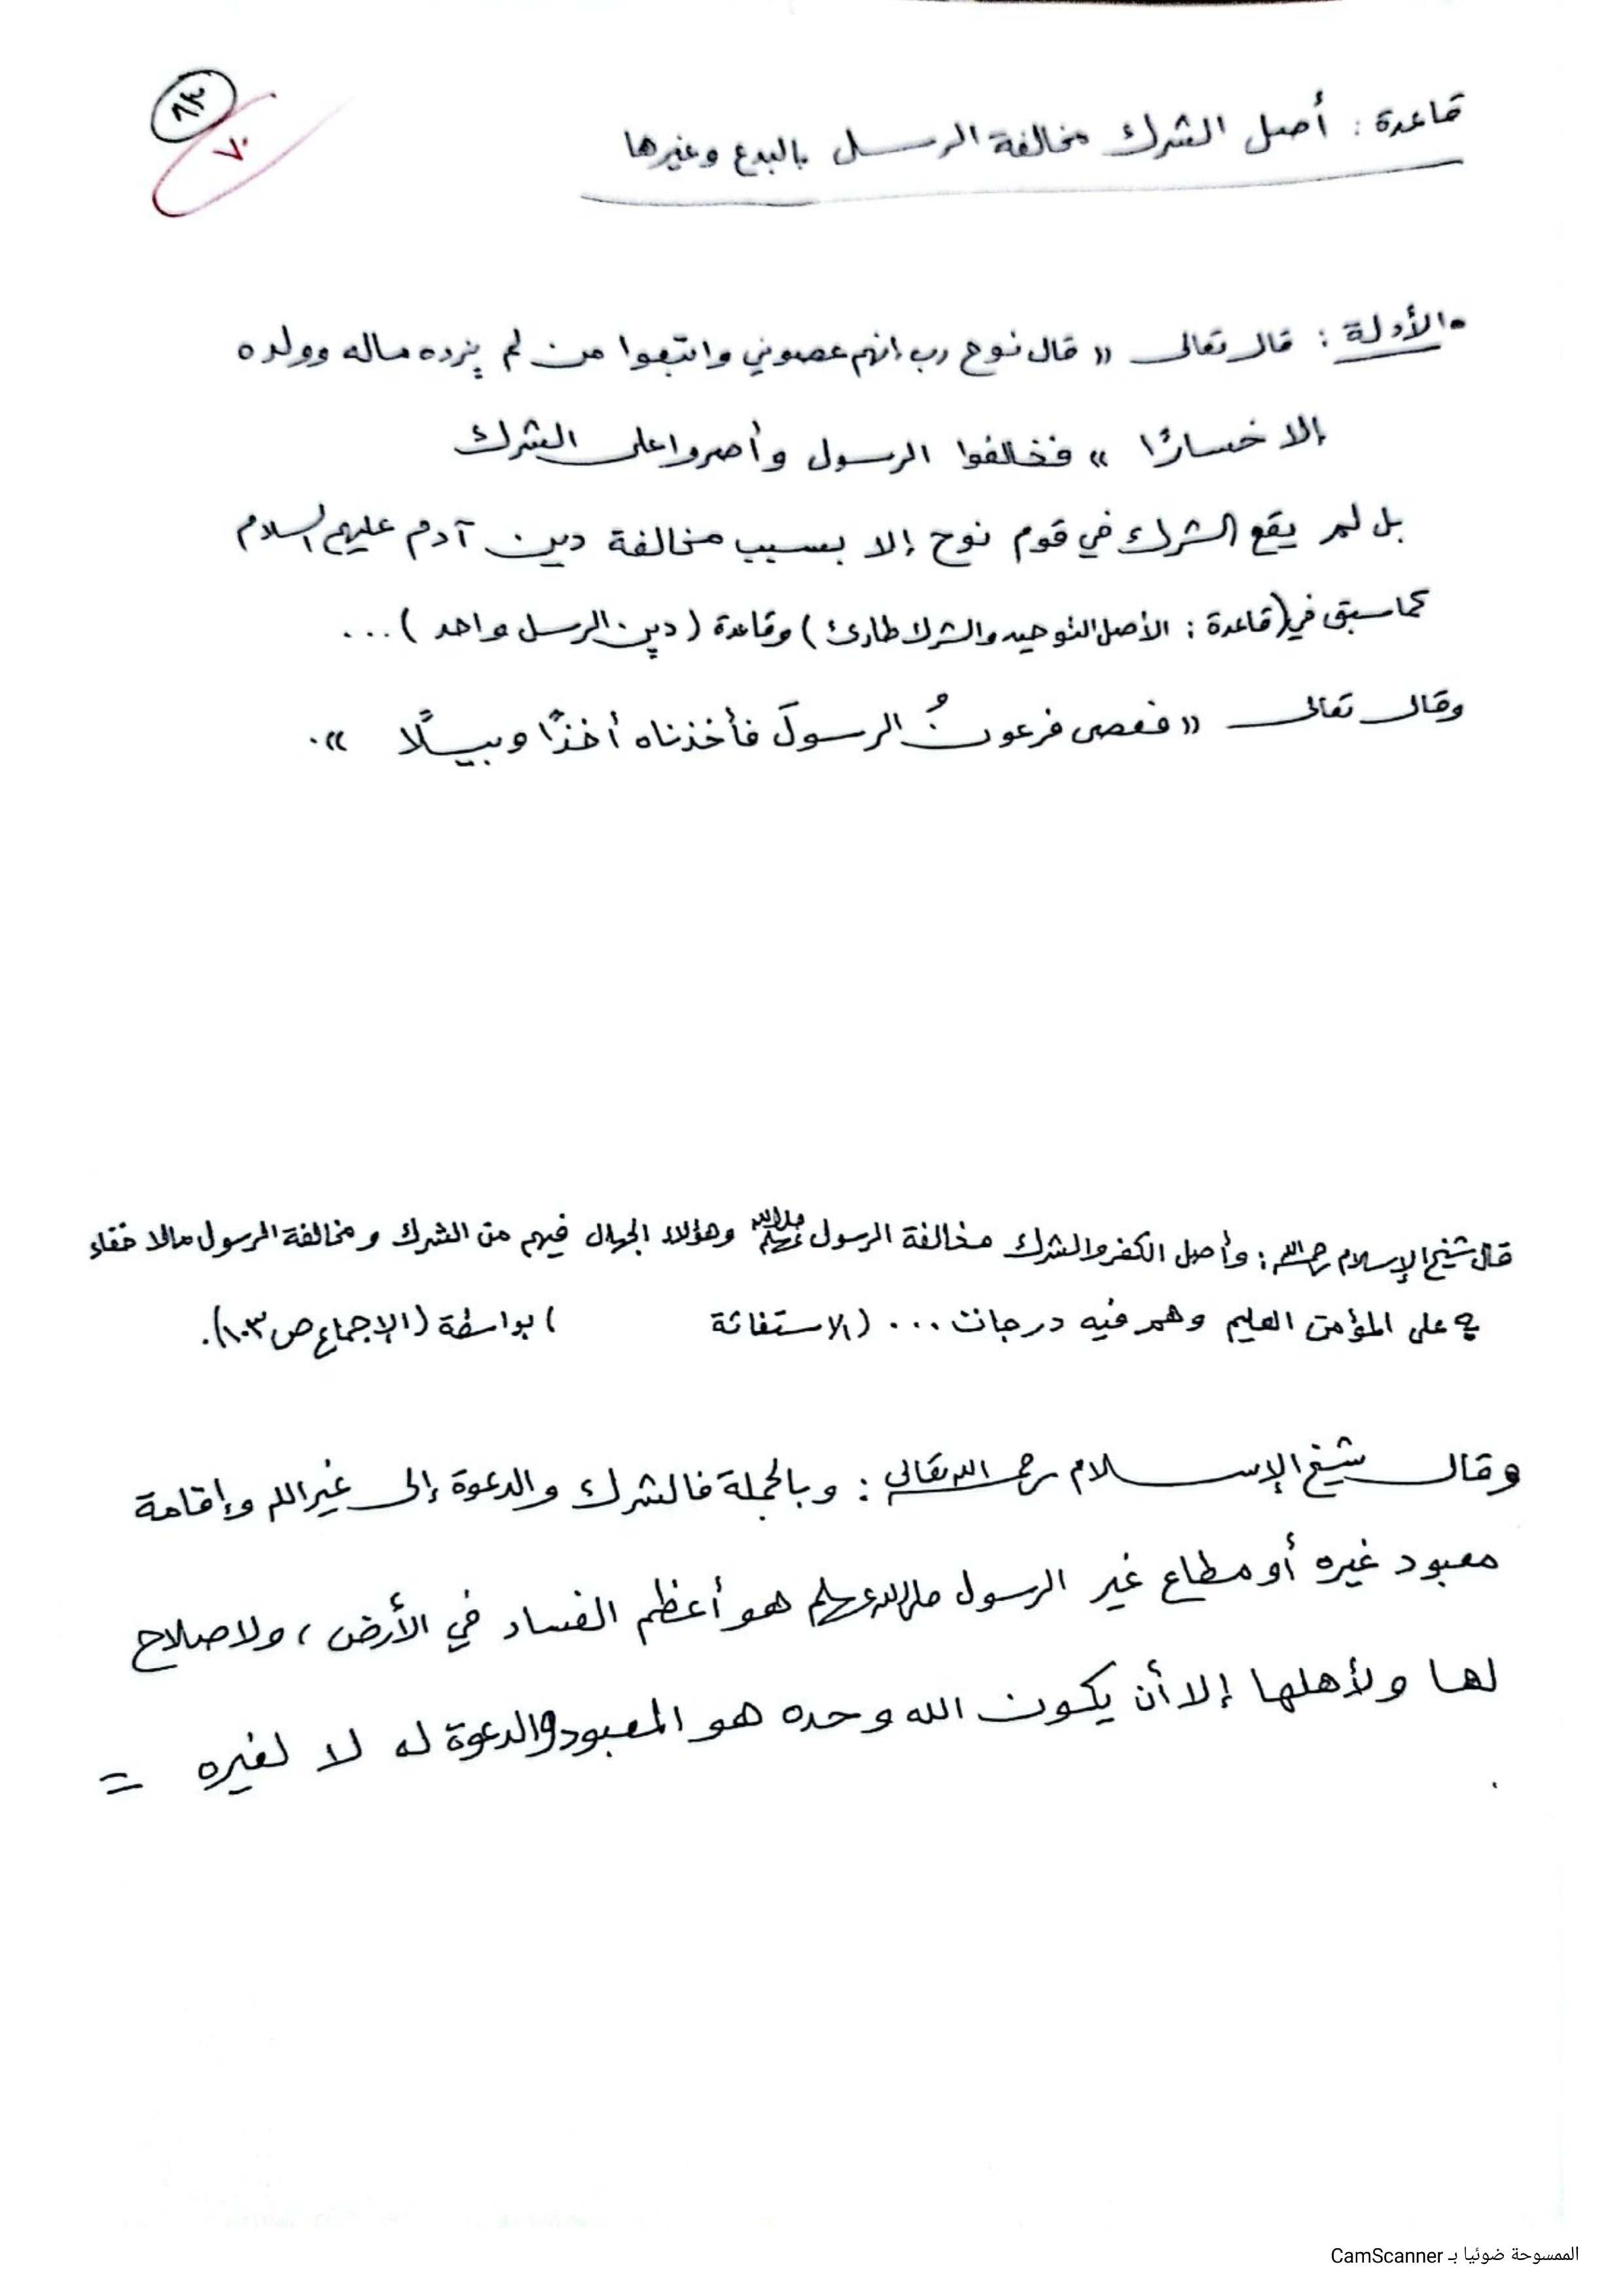 قاعدة : أصل الشرك مخالفة الرسل بالبدع وغيرها
٨٣
٧٠
• الأدلة : قال تعالى « قال نوح رب إنهم عصوني واتبعوا من لم يزده ماله وولده
إلا خسارًا » فخالفوا الرسول وأصروا على الشرك
بل لم يقع الشرك في قوم نوح إلا بسبب مخالفة دين آدم عليهم السلام
كما سبق في (قاعدة : الأصل التوحيد والشرك طارئ) وقاعدة (دين الرسل واحد) ...
وقال تعالى « فعصى فرعونُ الرسولَ فأخذناه أخذًا وبيلًا ».
قال شيخ الإسلام رحمه الله : وأصل الكفر والشرك مخالفة الرسول صلى الله عليه وسلم وهؤلاء الجهال فيهم من الشرك ومخالفة الرسول مالا خفاء
به على المؤمن العليم وهم فيه درجات ... (الاستغاثة ) بواسطة (الإجماع ص١٠٣).
وقال شيخ الإسلام رحمه الله تعالى : وبالجملة فالشرك والدعوة إلى غير الله وإقامة
معبود غيره أو مطاع غير الرسول صلى الله عليه وسلم هو أعظم الفساد في الأرض ، ولا صلاح
لها ولأهلها إلا أن يكون الله وحده هو المعبود والدعوة له لا لغيره =
الممسوحة ضوئيا بـ CamScanner